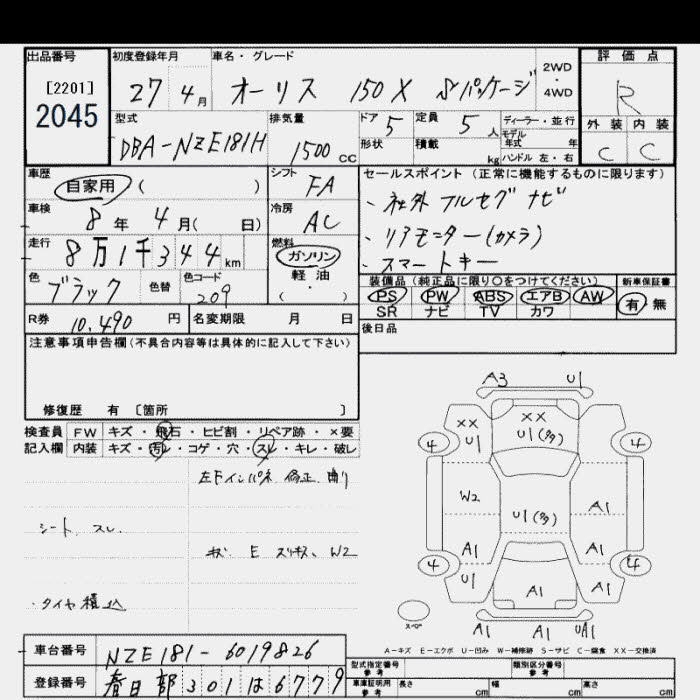 出品番号 初度登録年月 車名・グレード 2WD・4WD 評価点
[2201]
2045
27 4月 オーリス 150X Sパッケージ R
型式 排気量 ドア 5 定員 5人 ディーラー・並行 外装 内装
DBA-NZE181H 1500cc 形状 積載 kg モデル年式 年 C C
ハンドル 左・右
車歴 シフト セールスポイント (正常に機能するものに限ります)
自家用 ( ) FA ・社外 フルセグ ナビ
車検 冷房
8年 4月( 日) AC ・リアモニター(カメラ)
走行 燃料
8万1千344km ガソリン ・スマートキー
色 色替 色コード 軽油 装備品 (純正品に限り○をつけてください) 新車保証書
ブラック 209 ( ・ ) PS PW ABS エアB AW 有 無
SR ナビ TV カワ
R券 10,490円 名変期限 月 日 後日品
注意事項申告欄 (不具合内容等は具体的に記入して下さい)
修復歴 有 〔箇所 〕
検査員 FW キズ・飛石・ヒビ割・リペア跡・×要
記入欄 内装 キズ・汚レ・コゲ・穴・スレ・キレ・破レ
左Fインパネ 修正 曲り
シート スレ
キズ E スリキズ、W2
・タイヤ積込
A3 U1
XX XX
U1 U1(多)
4 4
W2 U1(多) A1
A1 A1
4 4
U1 A1 A1
スペア A1 A1 UA1
A-キズ E-エクボ U-凹み W-補修跡 S-サビ C-腐食 XX-交換済
車台番号 NZE181-6019826
登録番号 春日部301は6779
型式指定番号 参考 類別区分番号 参考
車庫証明用 参考 長さ cm 幅 cm 高さ cm